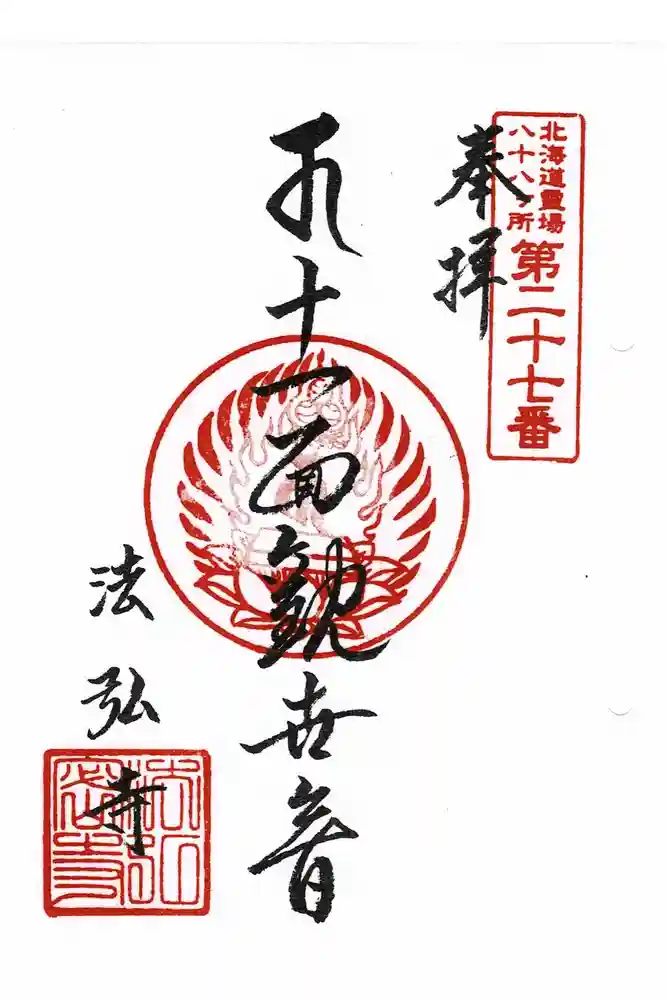 北海道霊場
八十八ヶ所
第二十七番
奉拝
十一面観世音
法弘寺